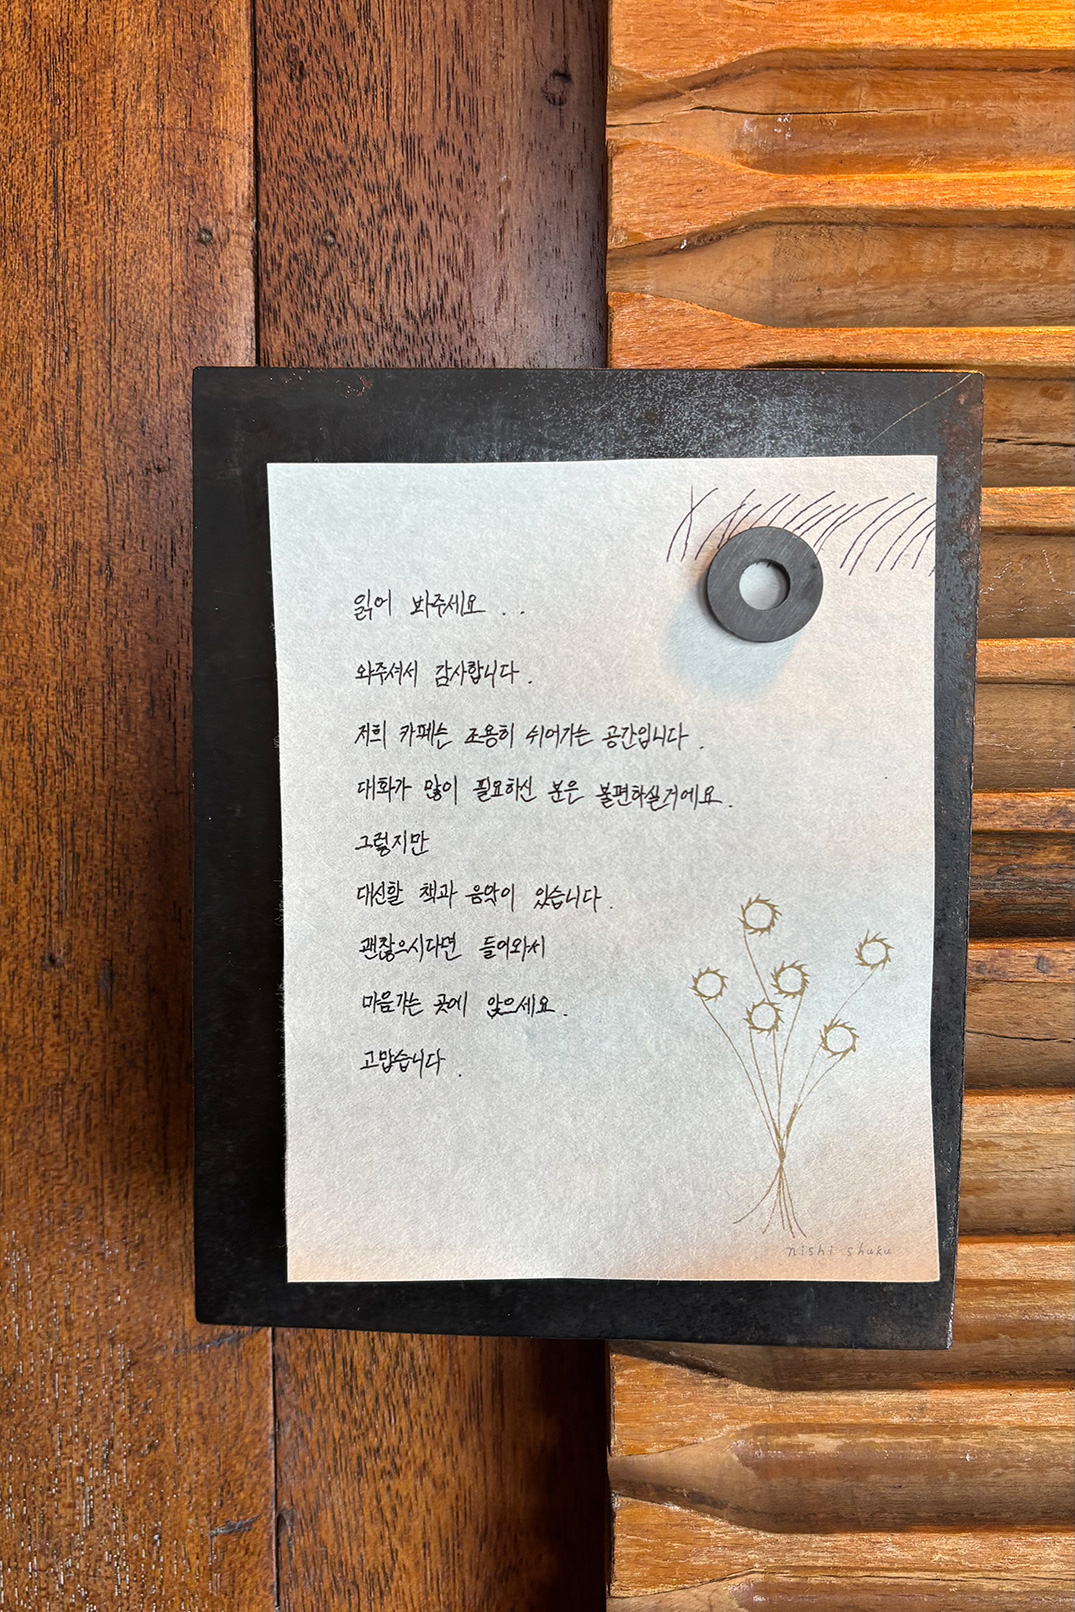 읽어 봐주세요 . .
와주셔서 감사합니다.
저희 카페는 조용히 쉬어가는 공간입니다.
대화가 많이 필요하신 분은 불편하실거에요.
그렇지만
대신할 책과 음악이 있습니다.
괜찮으시다면 들어와서
마음가는 곳에 앉으세요.
고맙습니다.
nishi shuku